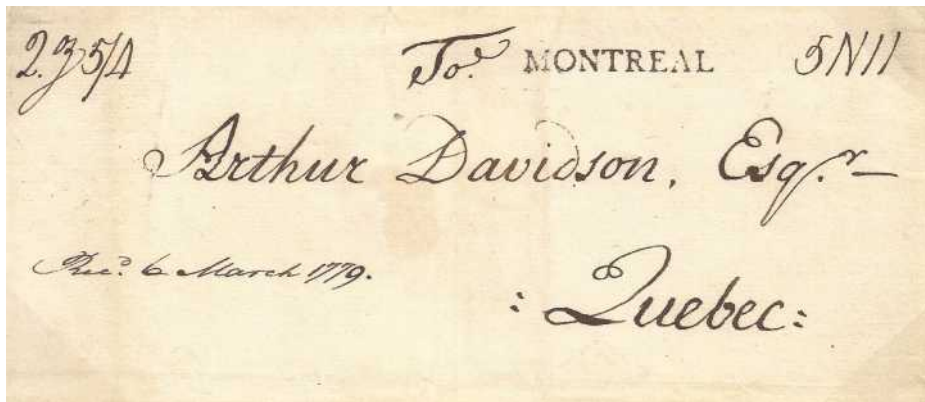 2.z 5/4 To. MONTREAL 5N11
Arthur Davidson, Esqr. —
Rec.d 6 March 1779.
: Quebec :